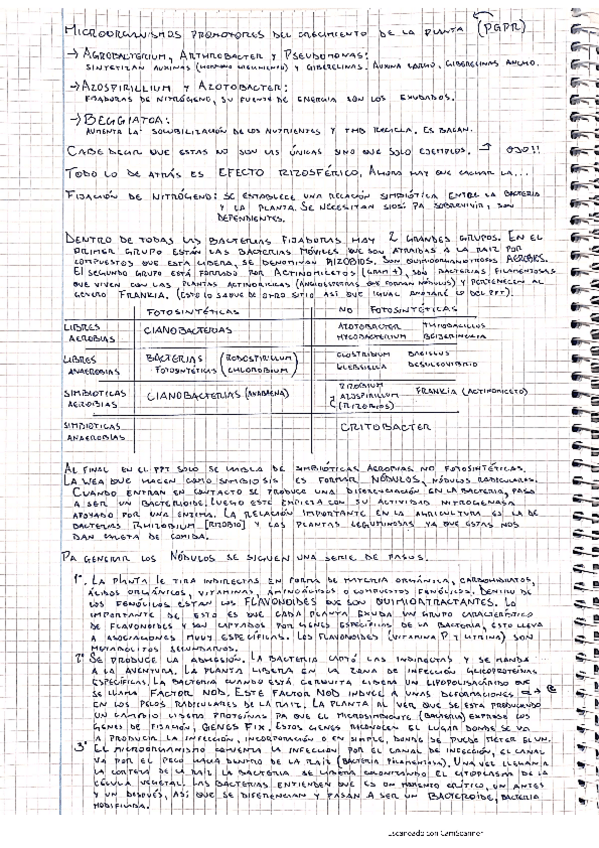 MICROORGANISMOS PROMOTORES DEL CRECIMIENTO DE LA PLANTA (PGPR)
→ AGROBACTERIUM, ARTHROBACTER Y PSEUDOMONAS:
SINTETIZAN AUXINAS (HORMONA CRECIMIENTO) Y GIBERELINAS. AUXINA LARGO, GIBERELINAS ANCHO.
→ AZOSPIRILLIUM Y AZOTOBACTER:
FIJADORAS DE NITRÓGENO, SU FUENTE DE ENERGIA SON LOS EXUDADOS.
→ BEGGIATOA:
AUMENTA LA SOLUBILIZACIÓN DE LOS NUTRIENTES Y TMB RECICLA. ES BACAN.
CABE DECIR QUE ESTAS NO SON LAS ÚNICAS SINO QUE SOLO EJEMPLOS. → OJO!!
TODO LO DE ATRÁS ES EFECTO RIZOSFÉRICO. AHORA HAY QUE CACHAR LA...
FIJACIÓN DE NITRÓGENO: SE ESTABLECE UNA RELACIÓN SIMBIÓTICA ENTRE LA BACTERIA
Y LA PLANTA. SE NECESITAN SIOSI PA SOBREVIVIR, SON
DEPENDIENTES.
DENTRO DE TODAS LAS BACTERIAS FIJADORAS HAY 2 GRANDES GRUPOS. EN EL
PRIMER GRUPO ESTÁN LAS BACTERIAS MÓVILES QUE SON ATRAIDAS A LA RAIZ POR
COMPUESTOS QUE ESTA LIBERA, SE DENOMINAN RIZOBIOS. SON QUIMIOORGANOTROFOS AEROBIOS.
EL SEGUNDO GRUPO ESTÁ FORMADO POR ACTINOMICETOS (GRAM +), SON BACTERIAS FILAMENTOSAS
QUE VIVEN CON LAS PLANTAS ACTINORICICAS (ANGIOSPERMAS QUE FORMAN NÓDULOS) Y PERTENECEN AL
GENERO FRANKIA. (ESTO LO SAQUE DE OTRO SITIO ASI QUE IGUAL ANOTARÉ LO DEL PPT).
FOTOSINTÉTICAS NO FOTOSINTÉTICAS
LIBRES AEROBIAS CIANOBACTERIAS AZOTOBACTER THIOBACILLUS
MYCOBACTERIUM BEIJERINCKIA
LIBRES ANAEROBIAS BACTERIAS FOTOSINTÉTICAS (RODOSPIRILLUM CHLOROBIUM) CLOSTRIDIUM BACILLUS
KLEBSIELLA DESULFOVIBRIO
SIMBIOTICAS AEROBIAS CIANOBACTERIAS (ANABAENA) RIZOBIUM
AZOSPIRILLUM FRANKIA (ACTINOMICETO)
(RIZOBIOS)
SIMBIOTICAS ANAEROBIAS CRITOBACTER
AL FINAL EN EL PPT SOLO SE HABLA DE SIMBIÓTICAS AEROBIAS NO FOTOSINTÉTICAS.
LA WEA QUE HACEN COMO SIMBIOSIS ES FORMAR NÓDULOS, NÓDULOS RADICULARES.
CUANDO ENTRAN EN CONTACTO SE PRODUCE UNA DIFERENCIACIÓN EN LA BACTERIA, PASO
A SER UN BACTEROIDE. LUEGO ESTE EMPIEZA CON SU ACTIVIDAD NITROGENASA
APOYADO POR UNA ENZIMA. LA RELACIÓN IMPORTANTE EN LA AGRICULTURA ES LA DE
BACTERIAS RHIZOBIUM [RIZOBIO] Y LAS PLANTAS LEGUMINOSAS YA QUE ESTAS NOS
DAN CALETA DE COMIDA.
PA GENERAR LOS NÓDULOS SE SIGUEN UNA SERIE DE PASOS.
1° LA PLANTA LE TIRA INDIRECTAS EN FORMA DE MATERIA ORGÁNICA, CARBOHIDRATOS,
ÁCIDOS ORGÁNICOS, VITAMINAS, AMINOÁCIDOS O COMPUESTOS FENÓLICOS. DENTRO DE
LOS FENÓLICOS ESTÁN LOS FLAVONOIDES QUE SON QUIMIOATRACTANTES. LO
IMPORTANTE DE ESTO ES QUE CADA PLANTA EXUDA UN GRUPO CARACTERÍSTICO
DE FLAVONOIDES Y SON CAPTADOS POR GENES ESPECÍFICAS DE LA BACTERIA, ESTO LLEVA
A ASOCIACIONES MUUY ESPECÍFICAS. LOS FLAVONOIDES (VITAMINA P Y CITRINA) SON
METABOLITOS SECUNDARIOS.
2° SE PRODUCE LA ADHESIÓN. LA BACTERIA CAPTÓ LAS INDIRECTAS Y SE MANDA
A LA AVENTURA. LA PLANTA LIBERA EN LA ZONA DE INFECCIÓN GLICOPROTEÍNAS
ESPECÍFICAS. LA BACTERIA CUANDO ESTÁ CERQUITA LIBERA UN LIPOPOLISACÁRIDO QUE
SE LLAMA FACTOR NOD. ESTE FACTOR NOD INDUCE A UNAS DEFORMACIONES
EN LOS PELOS RADICULARES DE LA RAIZ. LA PLANTA AL VER QUE SE ESTA PRODUCIENDO
UN CAMBIO LIBERA PROTEÍNAS PA QUE EL MICROSIMBIONTE (BACTERIA) EXPRESE LOS
GENES DE FIJACIÓN, GENES FIX. ESTOS GENES RECONOCEN EL LUGAR DONDE SE VA
A PRODUCIR LA INFECCIÓN, INCORPORACIÓN O EN SIMPLE, DONDE SE PUEDE METER EL WN.
3° EL MICROORGANISMO COMIENZA LA INFECCION POR EL CANAL DE INFECCIÓN, EL CANAL
VA POR EL PELO HACIA DENTRO DE LA RAIZ (BACTERIA FILAMENTOSA). UNA VEZ LLEGAN A
LA CORTEZA DE LA RAIZ LA BACTERIA SE LIBERA COLONIZANDO EL CITOPLASMA DE LA
CÉLULA VEGETAL. LAS BACTERIAS ENTIENDEN QUE ES UN MOMENTO CRÍTICO, UN ANTES
Y UN DESPUÉS, ASÍ QUE SE DIFERENCIAN Y PASAN A SER UN BACTEROIDE, BACTERIA
MODIFICADA.
Escaneado con CamScanner